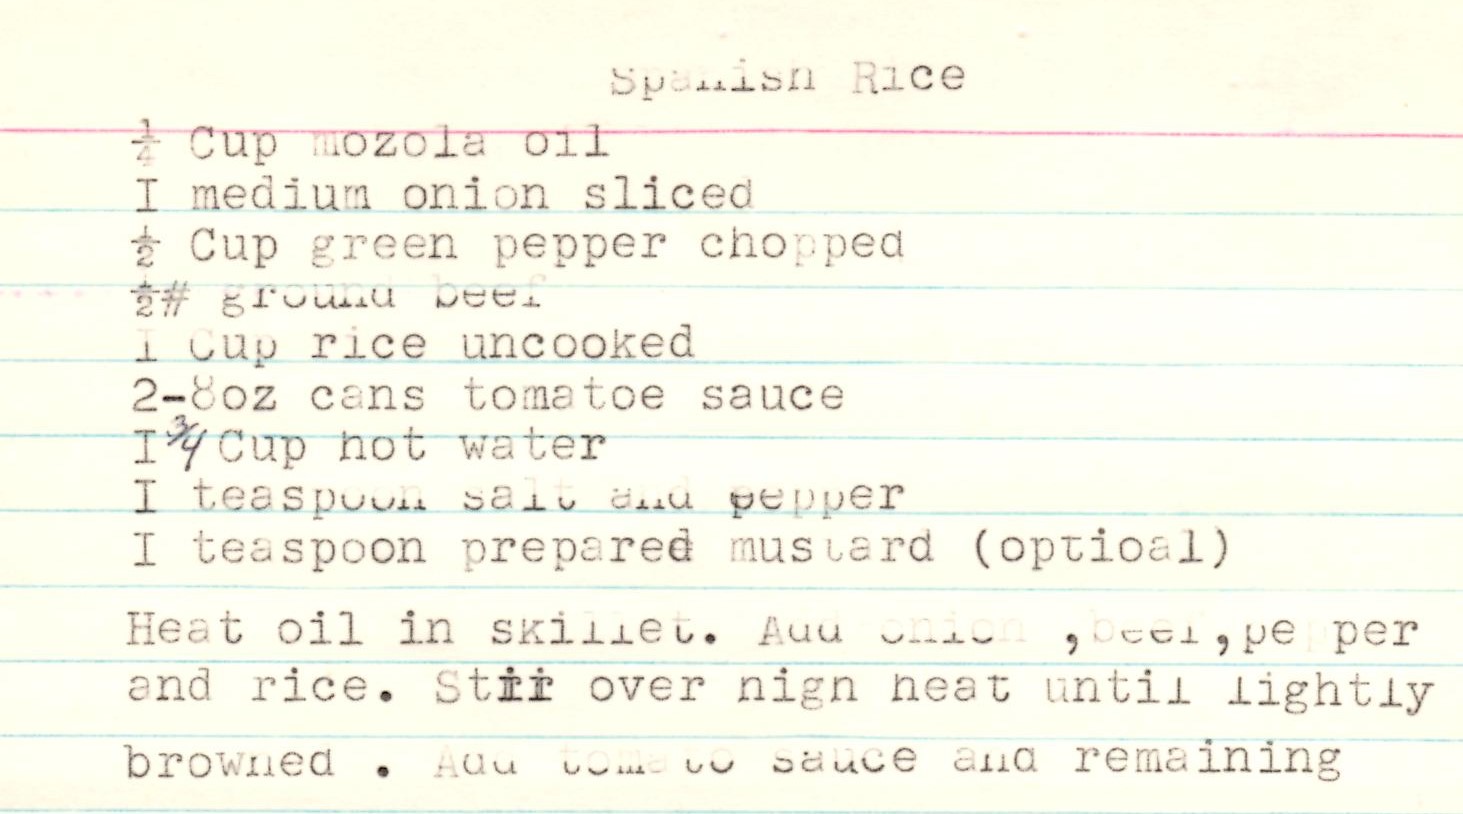 Spanish Rice
¼ Cup mozola oil
I medium onion sliced
½ Cup green pepper chopped
½# ground beef
1 Cup rice uncooked
2-8oz cans tomatoe sauce
I 3/4 Cup hot water
I teaspoon salt and pepper
I teaspoon prepared mustard (optioal)
Heat oil in skillet. Add onion ,beef,pepper
and rice. Stir over high heat until lightly
browned . Add tomato sauce and remaining